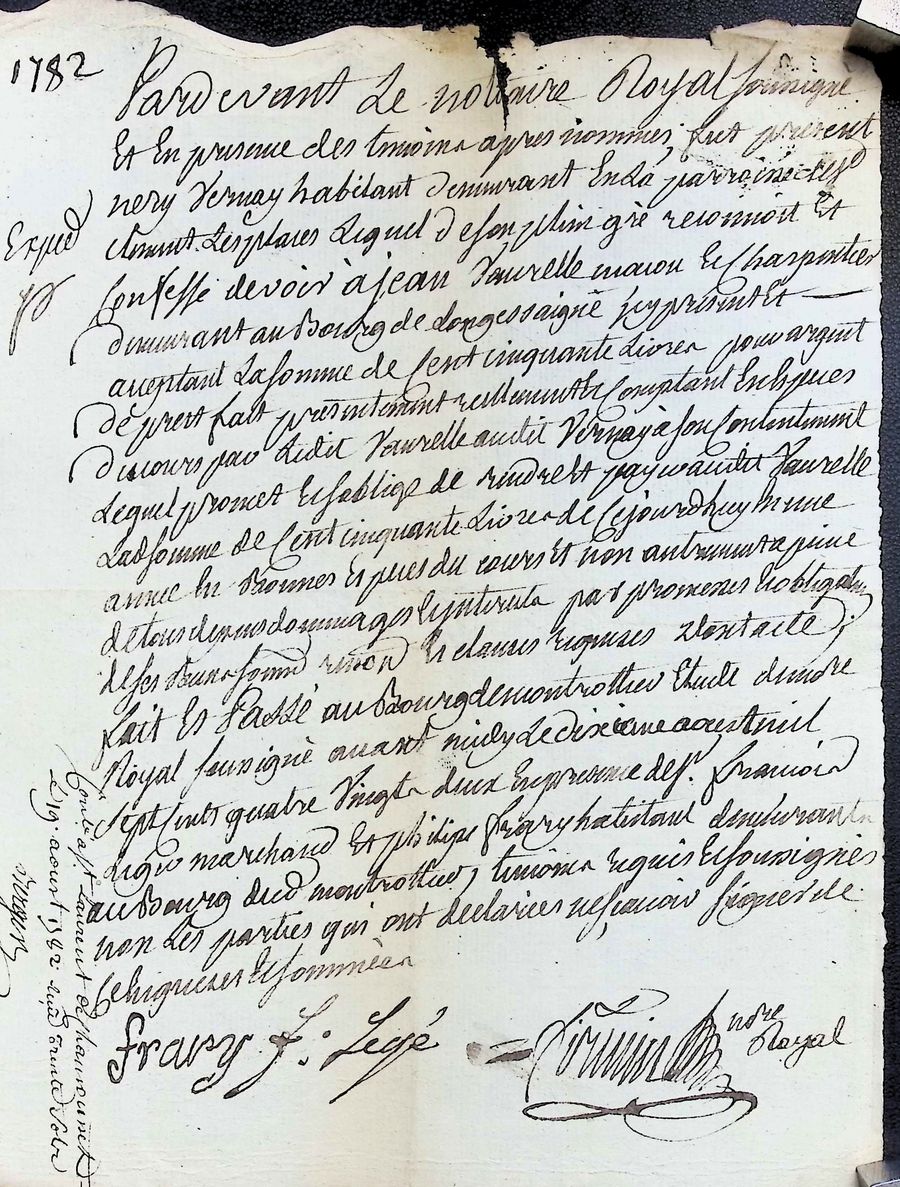 1782
Pardevant Le nottaire Royal soussigné
Et En presence des temoins apres nommes, fut present
nery Vernay habitant demeurant En La parroisse de st
Clement Les places Lequel de son plein gré reconnoit Et
Confesse devoir à jean Vaurelle macon Et Charpentier
demeurant au Bourg de Longessaigne icy present Et
aceptant La somme de Cent cinquante Livres pour argent
de prest fait presentement reellement Et Comptant En Especes
du cours par Ledit Vaurelle audit Vernay à son Contentement
Lequel promet Et soblige de rendre Et payer audit Vaurelle
Ladsomme de Cent cinquante Livres de Cejourdhuy En une
annee En Bonnes Especes du cours Et non autrement a peine
de tous depens dommages Et interets par promesses Et obligaon
de ses Biens Et clauses requises dont acte,
fait Et Passé au Bourg de montrottier Etude du nore
Royal soussigné avant midy Le dixieme aoust mil
sept Cents quatre Vingts deux En presence de sr. francois
Legé marchand Et philipe frapy habitant demeurants
au Bourg dud montrottier, temoins requis Et soussignés
non Les parties qui ont declarees ne scavoir signer de
Ce Enquises Et sommées
frapy f: Legé
nore
Royal
Exped
Conte a st Laurent de Chamousset
Le 19. aoust 1782. Recu trente sols